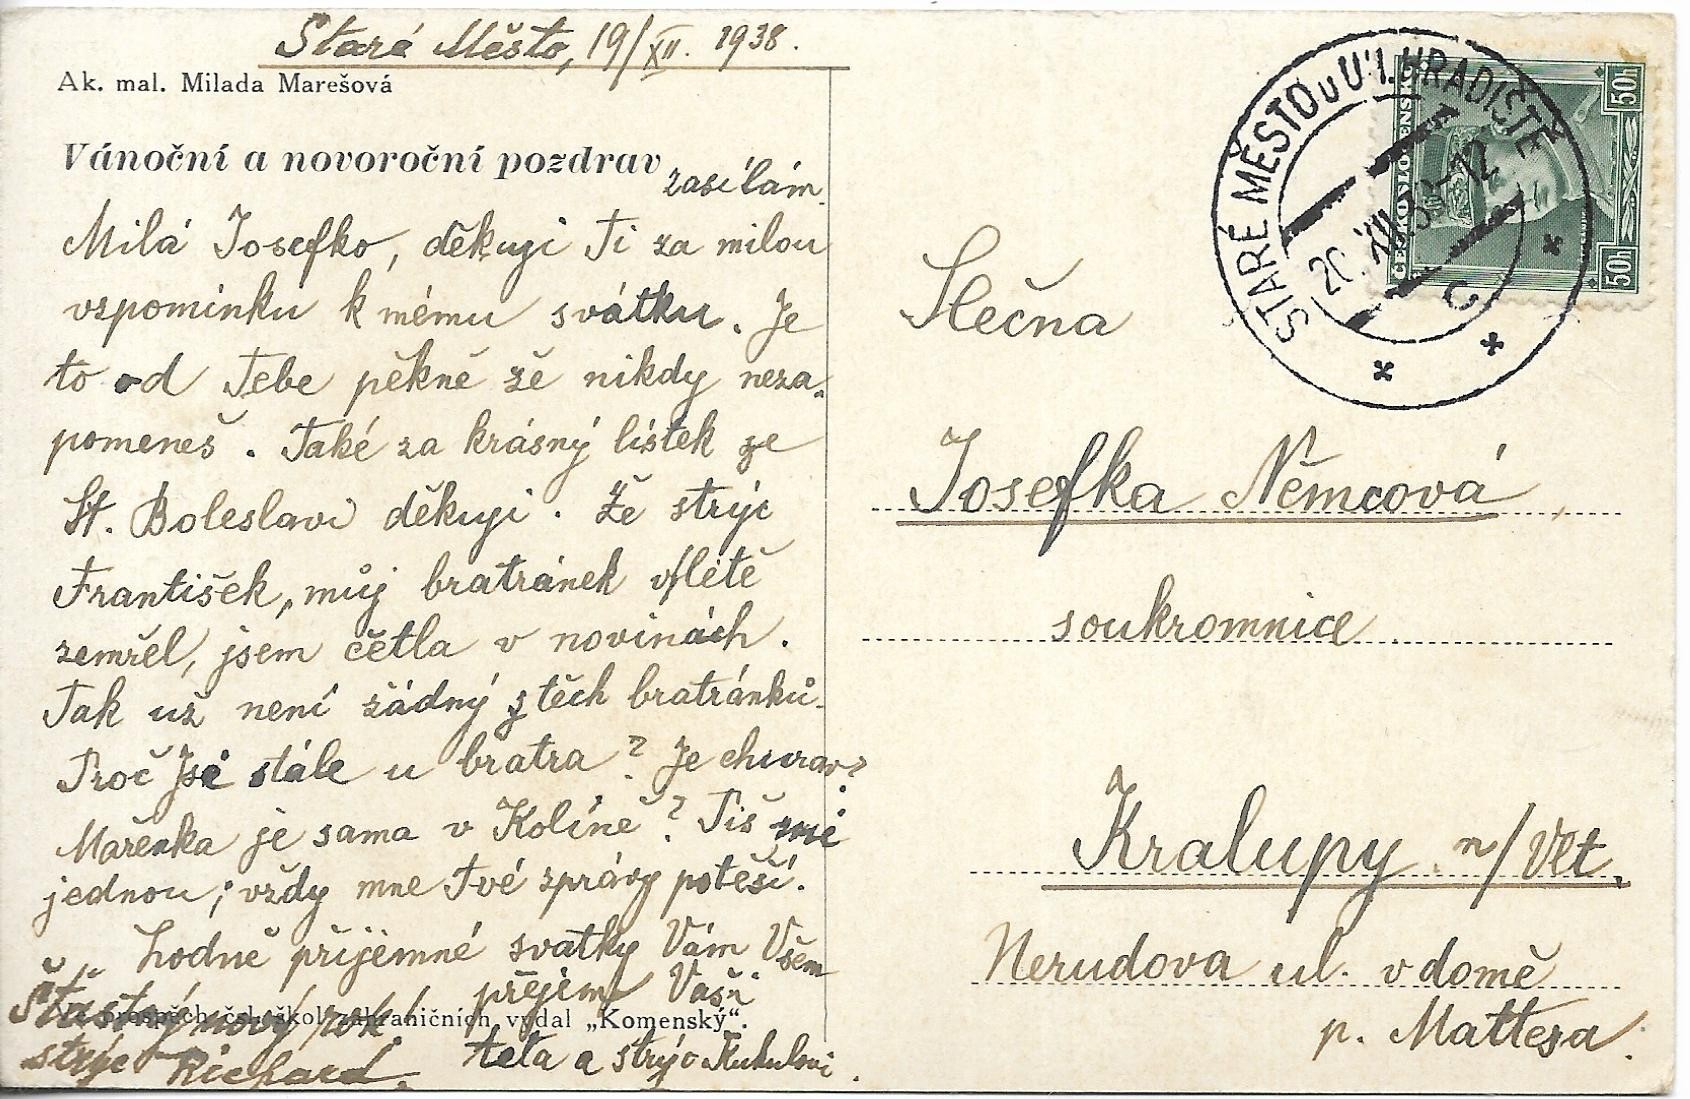 Staré Město, 19/XII. 1938.
Ak. mal. Milada Marešová
Vánoční a novoroční pozdrav
zasílám.
Milá Josefko, děkuji Ti za milou
vzpomínku k mému svátku. Je
to od Tebe pěkné že nikdy neza-
pomeneš. Také za krásný lístek ze
St. Boleslavi děkuji. Že strýc
František, můj bratránek v létě
zemřel, jsem četla v novinách.
Tak už není žádný z těch bratránků.
Proč jsi stále u bratra? Je churav?
Mařenka je sama v Kolíně? Piš mi
jednou; vždy mne Tvé zprávy potěší.
Hodně příjemné svatky Vám Všem
přejeme Vaši
Šťastný nový rok!
Ve prospěch čsl. škol zahraničních vydal „Komenský“.
strýc Richard.
teta a strýc Kukulovi.
STARÉ MĚSTO u UH. HRADIŠTĚ
20.XII.38-12
C
ČESKOSLOVENSKO
50h
50h
Slečna
Josefka Němcová
soukromnice
Kralupy n/Vlt.
Nerudova ul. v domě
p. Mattesa.